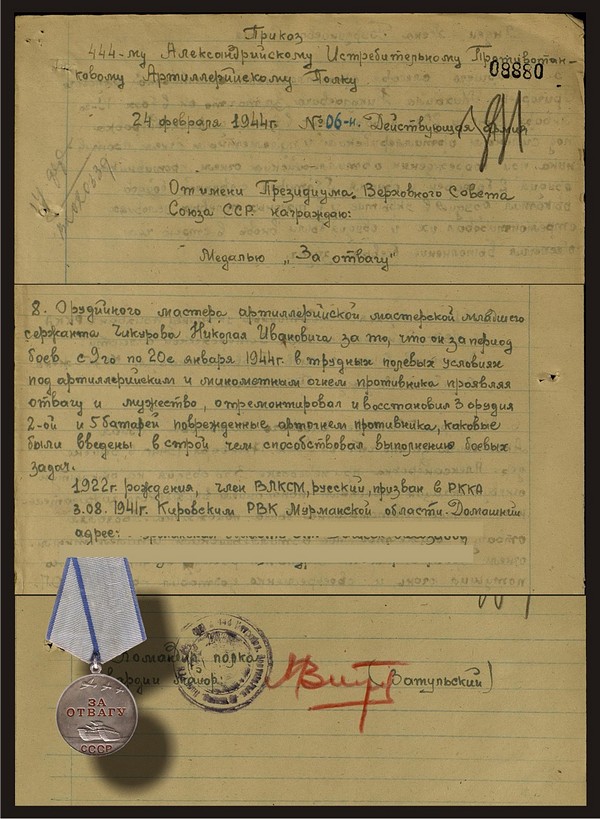 Приказ
444-му Александрийскому Истребительному Противотан-
ковому Артиллерийскому Полку
08880
24 февраля 1944г. № 06-н. Действующая армия
От имени Президиума Верховного Совета
Союза ССР награждаю:
Медалью „За отвагу"
8. Орудийного мастера артиллерийской мастерской младшего
сержанта Чикурова Николая Ивановича за то, что он за период
боев с 9го по 20е января 1944г. в трудных полевых условиях
под артиллерийским и минометным огнем противника проявляя
отвагу и мужество, отремонтировал и восстановил 3 орудия
2-ой и 5 батарей поврежденные артогнем противника, каковые
были введены в строй чем способствовал выполнению боевых
задач.
1922г. рождения, член ВЛКСМ, русский, призван в РККА
3.08.1941г. Кировским РВК Мурманской области. Домашний
адрес:
Командир полка
гвардии майор: (Ватульский)
ЗА
ОТВАГУ
СССР